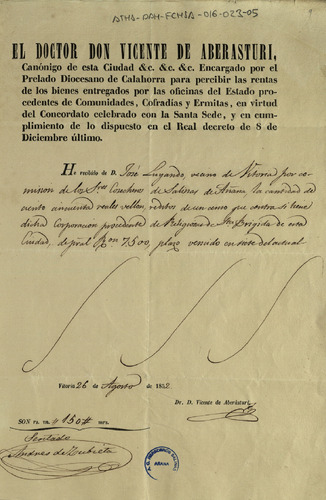 ATHA-DAH-FCHSA-016-023-05
EL DOCTOR DON VICENTE DE ABERASTURI,
Canónigo de esta Ciudad &c. &c. &c. Encargado por el
Prelado Diocesano de Calahorra para percibir las rentas
de los bienes entregados por las oficinas del Estado pro-
cedentes de Comunidades, Cofradías y Ermitas, en virtud
del Concordato celebrado con la Santa Sede, y en cum-
plimiento de lo dispuesto en el Real decreto de 8 de
Diciembre último.
He recibido de D. José Lugando, vecino de Vitoria por co-
mision de los Sres de Salinas de Añana la cantidad de
ciento cincuenta reales vellon, reditos de un censo que contra si tiene
dicha Corporacion procedente de Religiosas de Sta Brigida de esta
Ciudad, de pral Rvon 7500, plazo vencido en siete del actual
Vitoria 26 de Agosto de 1852.
Dr. D. Vicente de Aberásturi.
SON rs. vn. #150# mrs.
Sentado
Andres de Zubieta
ARABA